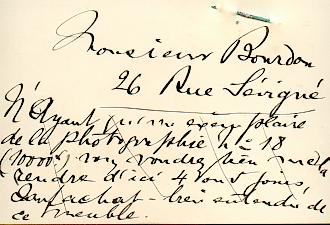 Monsieur Bourdon
26 Rue Sévigné
N'Ayant qu'une exemplaire
de la photographie n° 18
(10000) vous voudrez bien me la
rendre d'ici 4 jours,
Sans achat - bien entendu de
ce meuble.